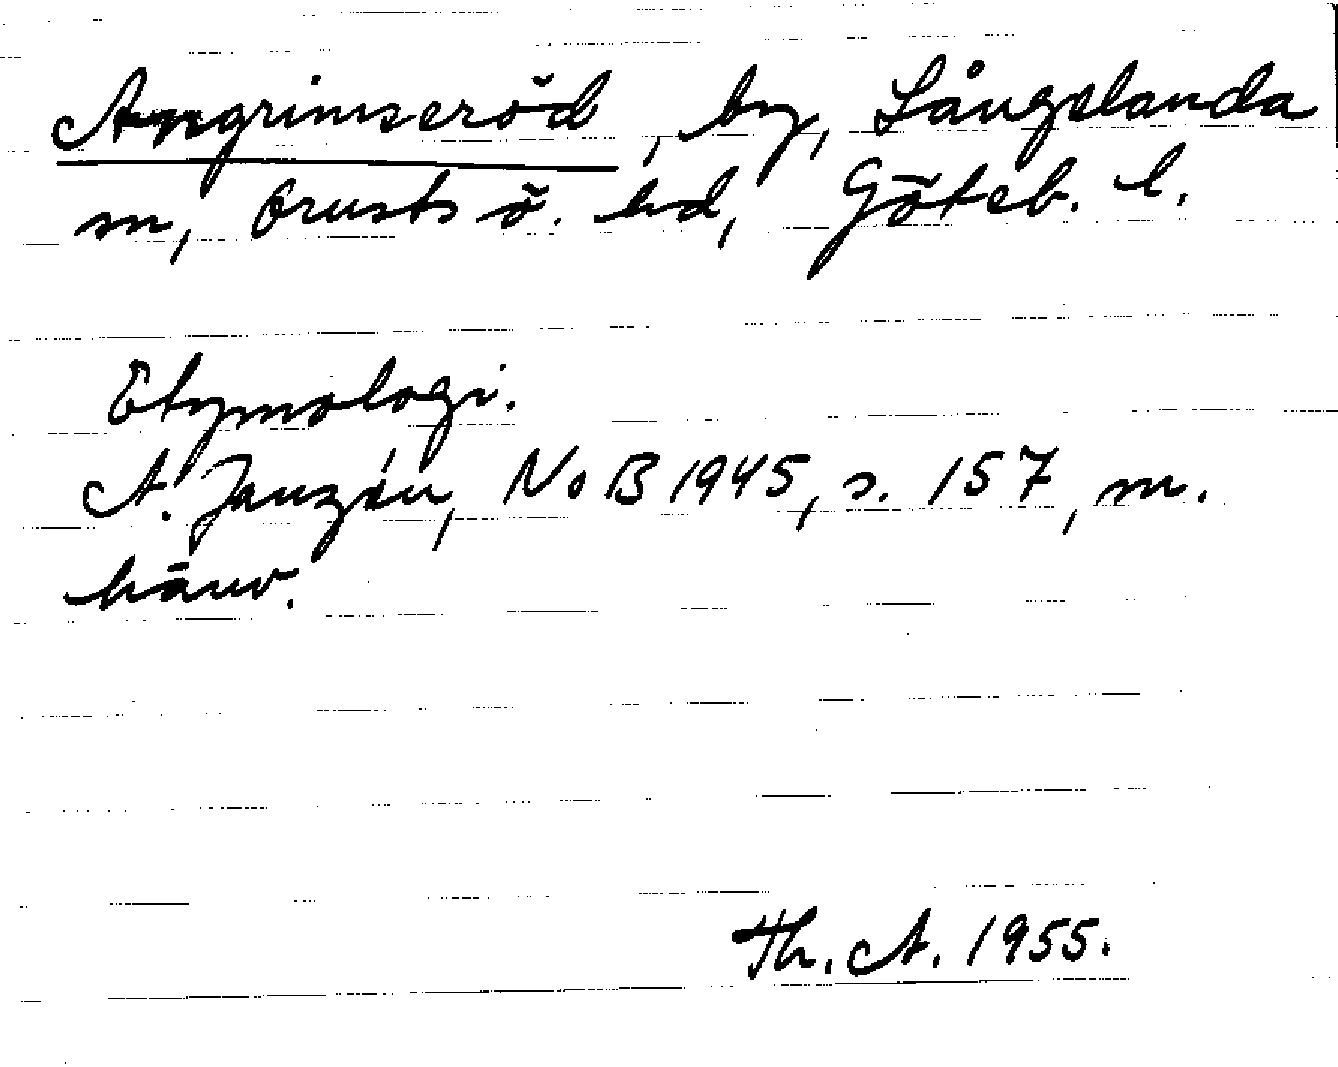 Angrimseröd, by, Långelanda
sn, Orusts ö. hd, Göteb. l.
Etymologi.
A. Janzén, NoB 1945, s. 157, m.
hänv.
Th. A. 1955.